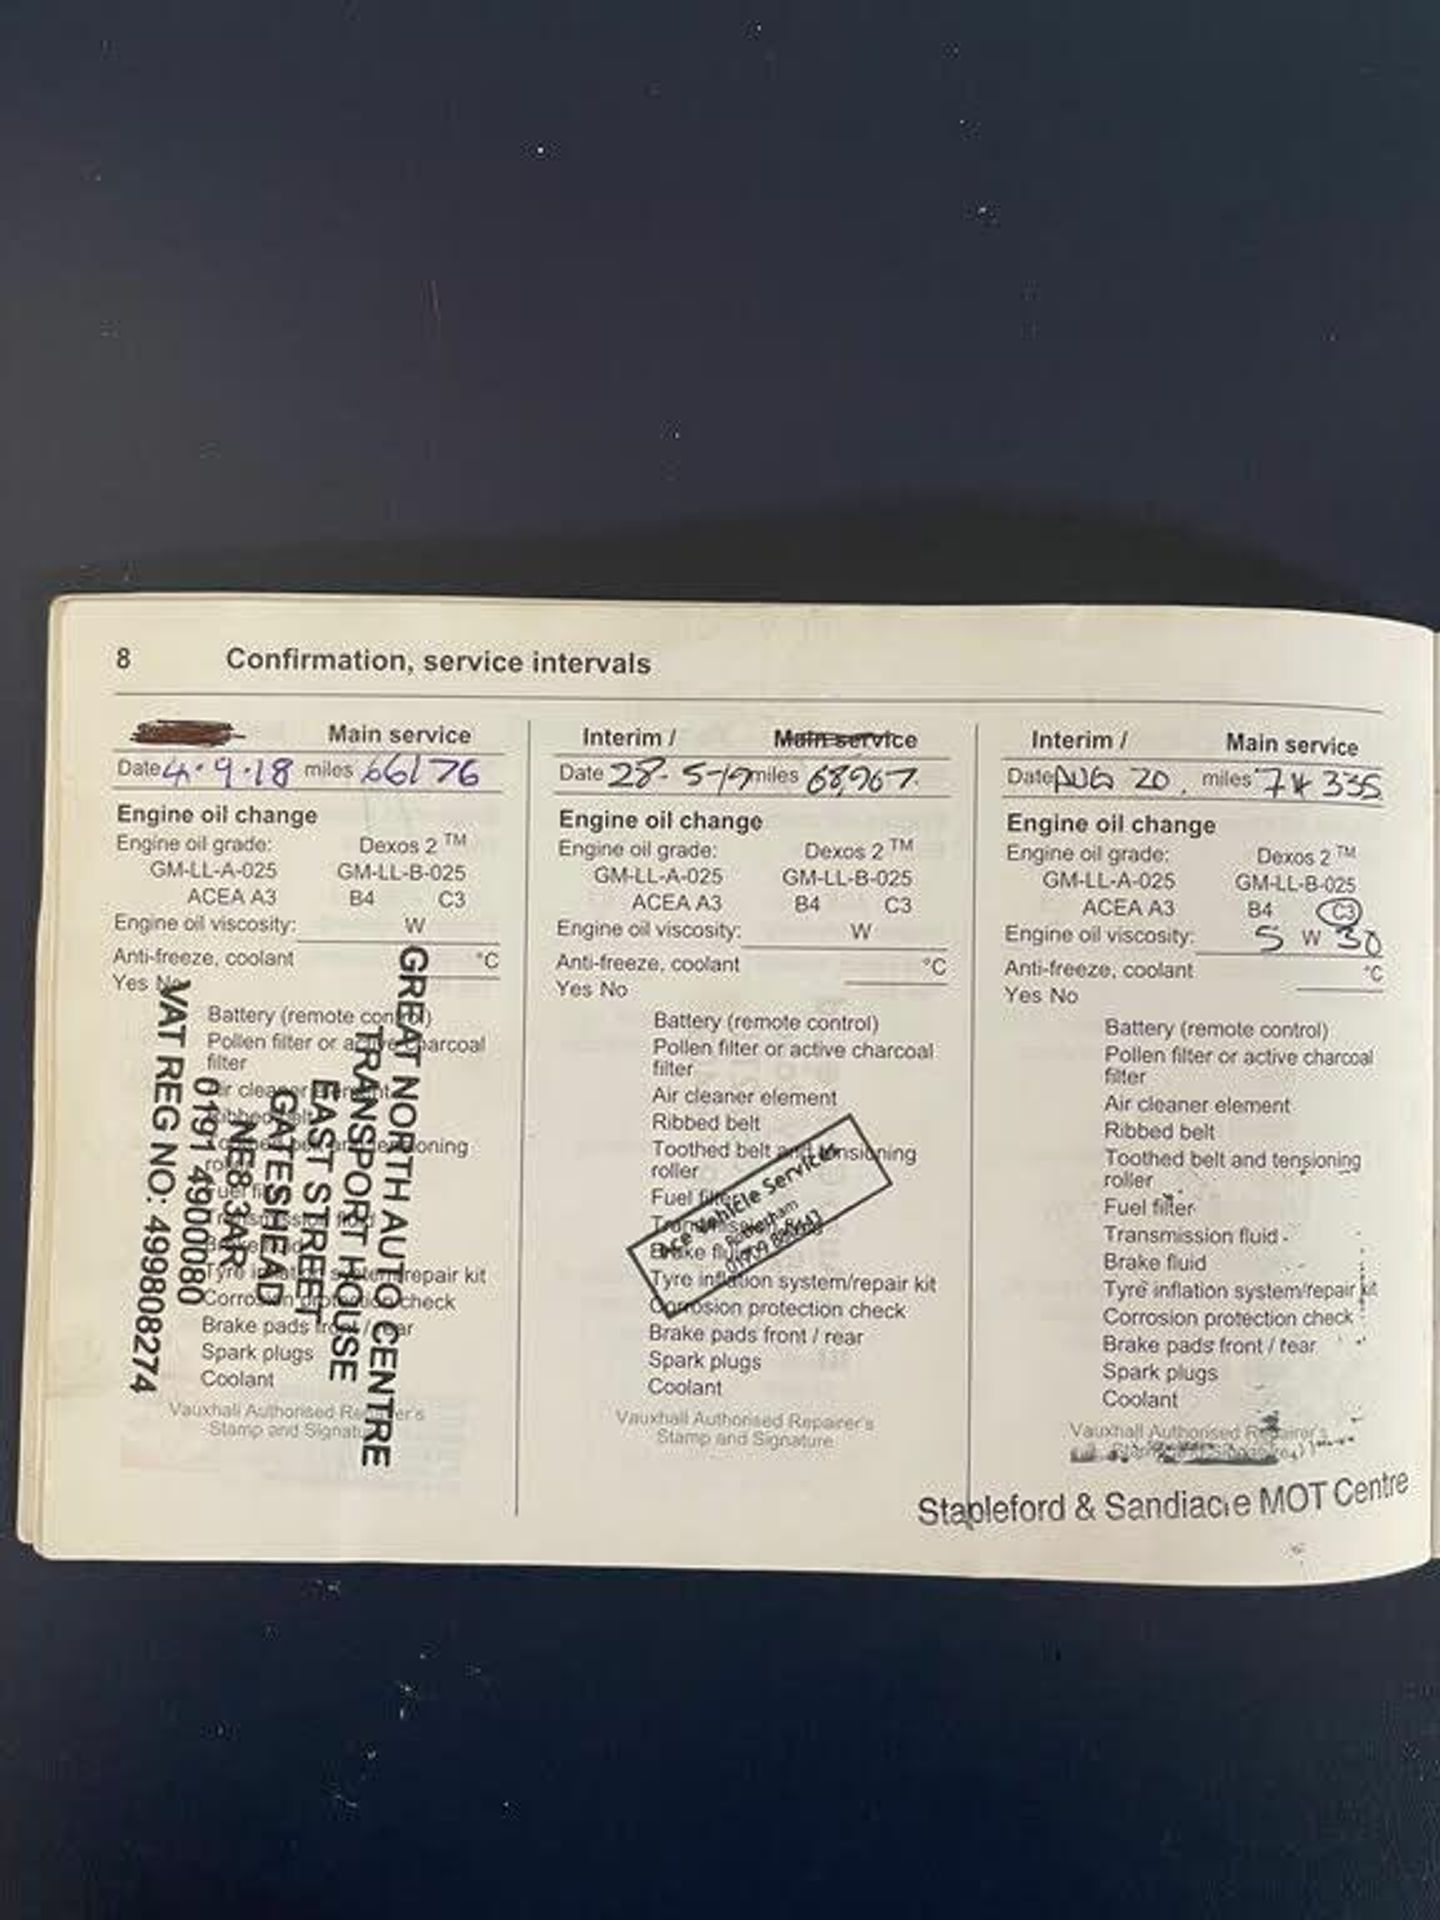 8 Confirmation, service intervals
Main service
Date 4.9.18 miles 66176
Engine oil change
Engine oil grade: Dexos 2 TM
GM-LL-A-025 GM-LL-B-025
ACEA A3 B4 C3
Engine oil viscosity: W
Anti-freeze, coolant °C
Yes No
Battery (remote control)
Pollen filter or active charcoal
filter
Air cleaner element
Ribbed belt
Toothed belt and tensioning
roller
Fuel filter
Transmission fluid
Brake fluid
Tyre inflation system/repair kit
Corrosion protection check
Brake pads front / rear
Spark plugs
Coolant
Vauxhall Authorised Repairer's
Stamp and Signature
GREAT NORTH AUTO CENTRE
TRANSPORT HOUSE
EAST STREET
GATESHEAD
NE8 3AR
0191 4900080
VAT REG NO: 499808274
Interim / Main service
Date 28-5-19 miles 68,967.
Engine oil change
Engine oil grade: Dexos 2 TM
GM-LL-A-025 GM-LL-B-025
ACEA A3 B4 C3
Engine oil viscosity: W
Anti-freeze, coolant °C
Yes No
Battery (remote control)
Pollen filter or active charcoal
filter
Air cleaner element
Ribbed belt
Toothed belt and tensioning
roller
Fuel filter
Transmission fluid
Brake fluid
Tyre inflation system/repair kit
Corrosion protection check
Brake pads front / rear
Spark plugs
Coolant
Vauxhall Authorised Repairer's
Stamp and Signature
Ace Vehicle Services
Rotherham
01709
Interim / Main service
Date AUG 20. miles 74 335
Engine oil change
Engine oil grade: Dexos 2 TM
GM-LL-A-025 GM-LL-B-025
ACEA A3 B4 C3
Engine oil viscosity: 5 W 30
Anti-freeze, coolant °C
Yes No
Battery (remote control)
Pollen filter or active charcoal
filter
Air cleaner element
Ribbed belt
Toothed belt and tensioning
roller
Fuel filter
Transmission fluid
Brake fluid
Tyre inflation system/repair kit
Corrosion protection check
Brake pads front / rear
Spark plugs
Coolant
Vauxhall Authorised Repairer's
Stamp and Signature
Stapleford & Sandiacre MOT Centre